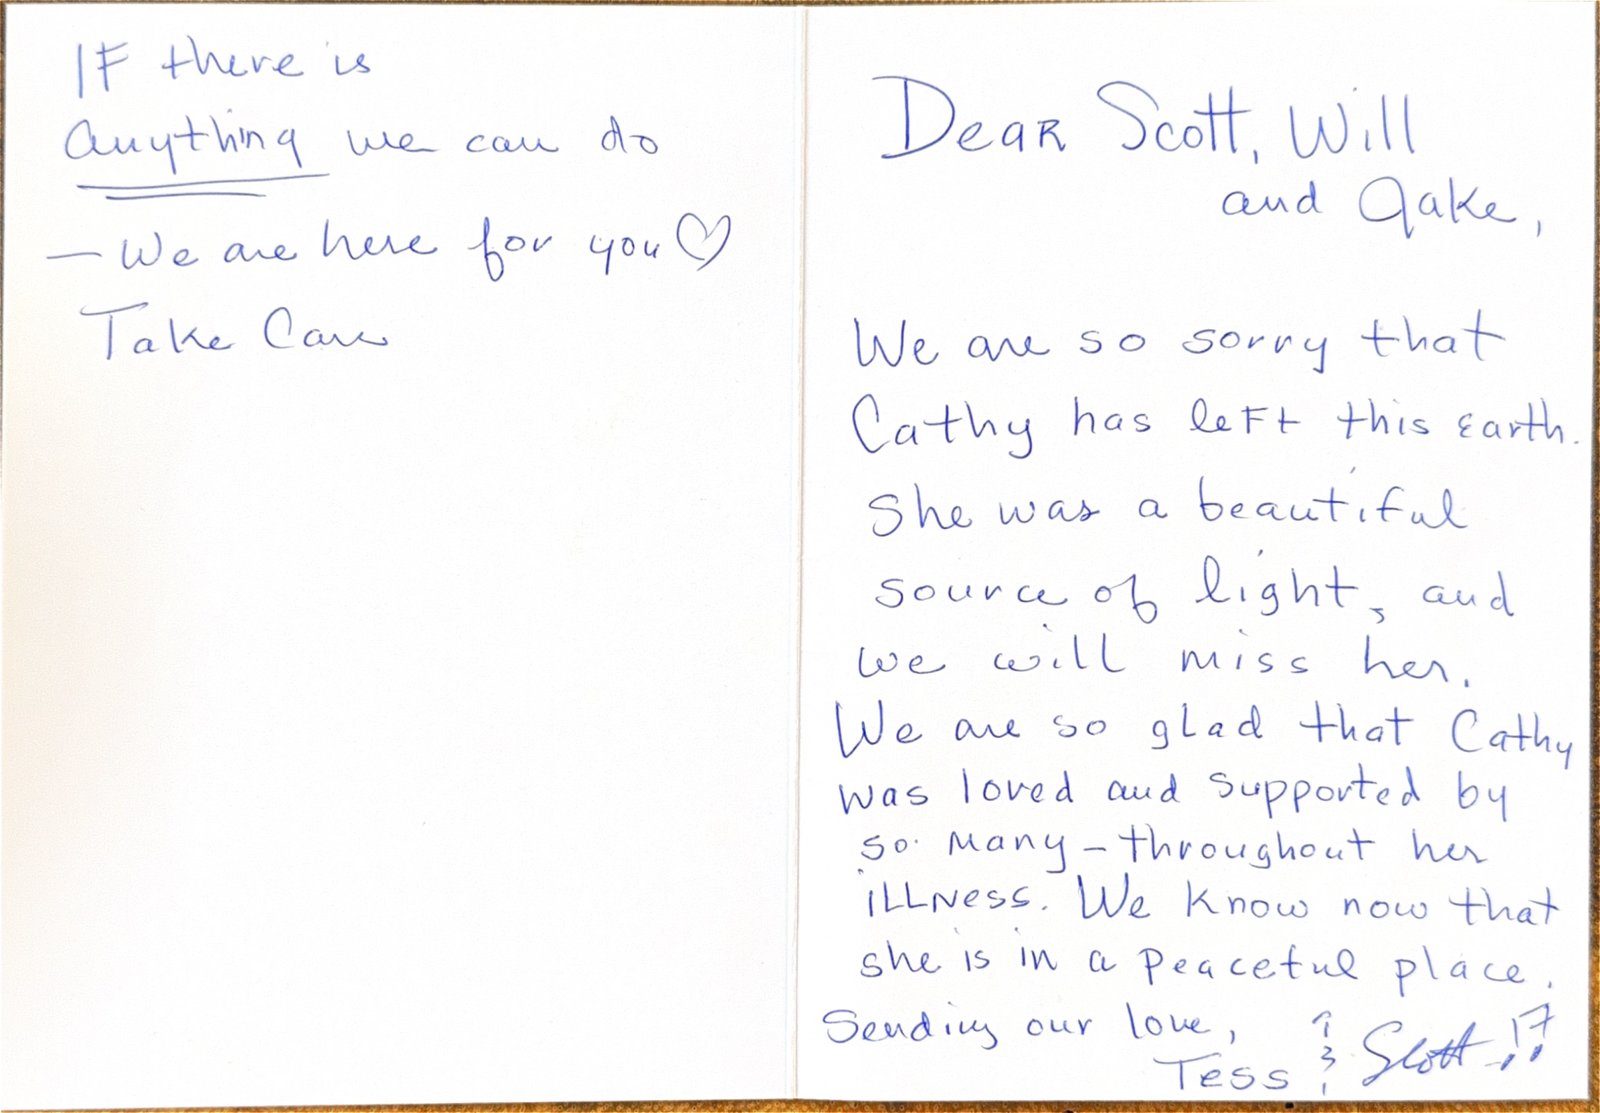 IF there is
anything we can do
— We are here for you ♡
Take Care
Dear Scott, Will
and Jake,
We are so sorry that
Cathy has left this Earth.
She was a beautiful
source of light, and
we will miss her.
We are so glad that Cathy
was loved and supported by
so many - throughout her
illness. We know now that
she is in a peaceful place.
Sending our love,
Tess & Scott